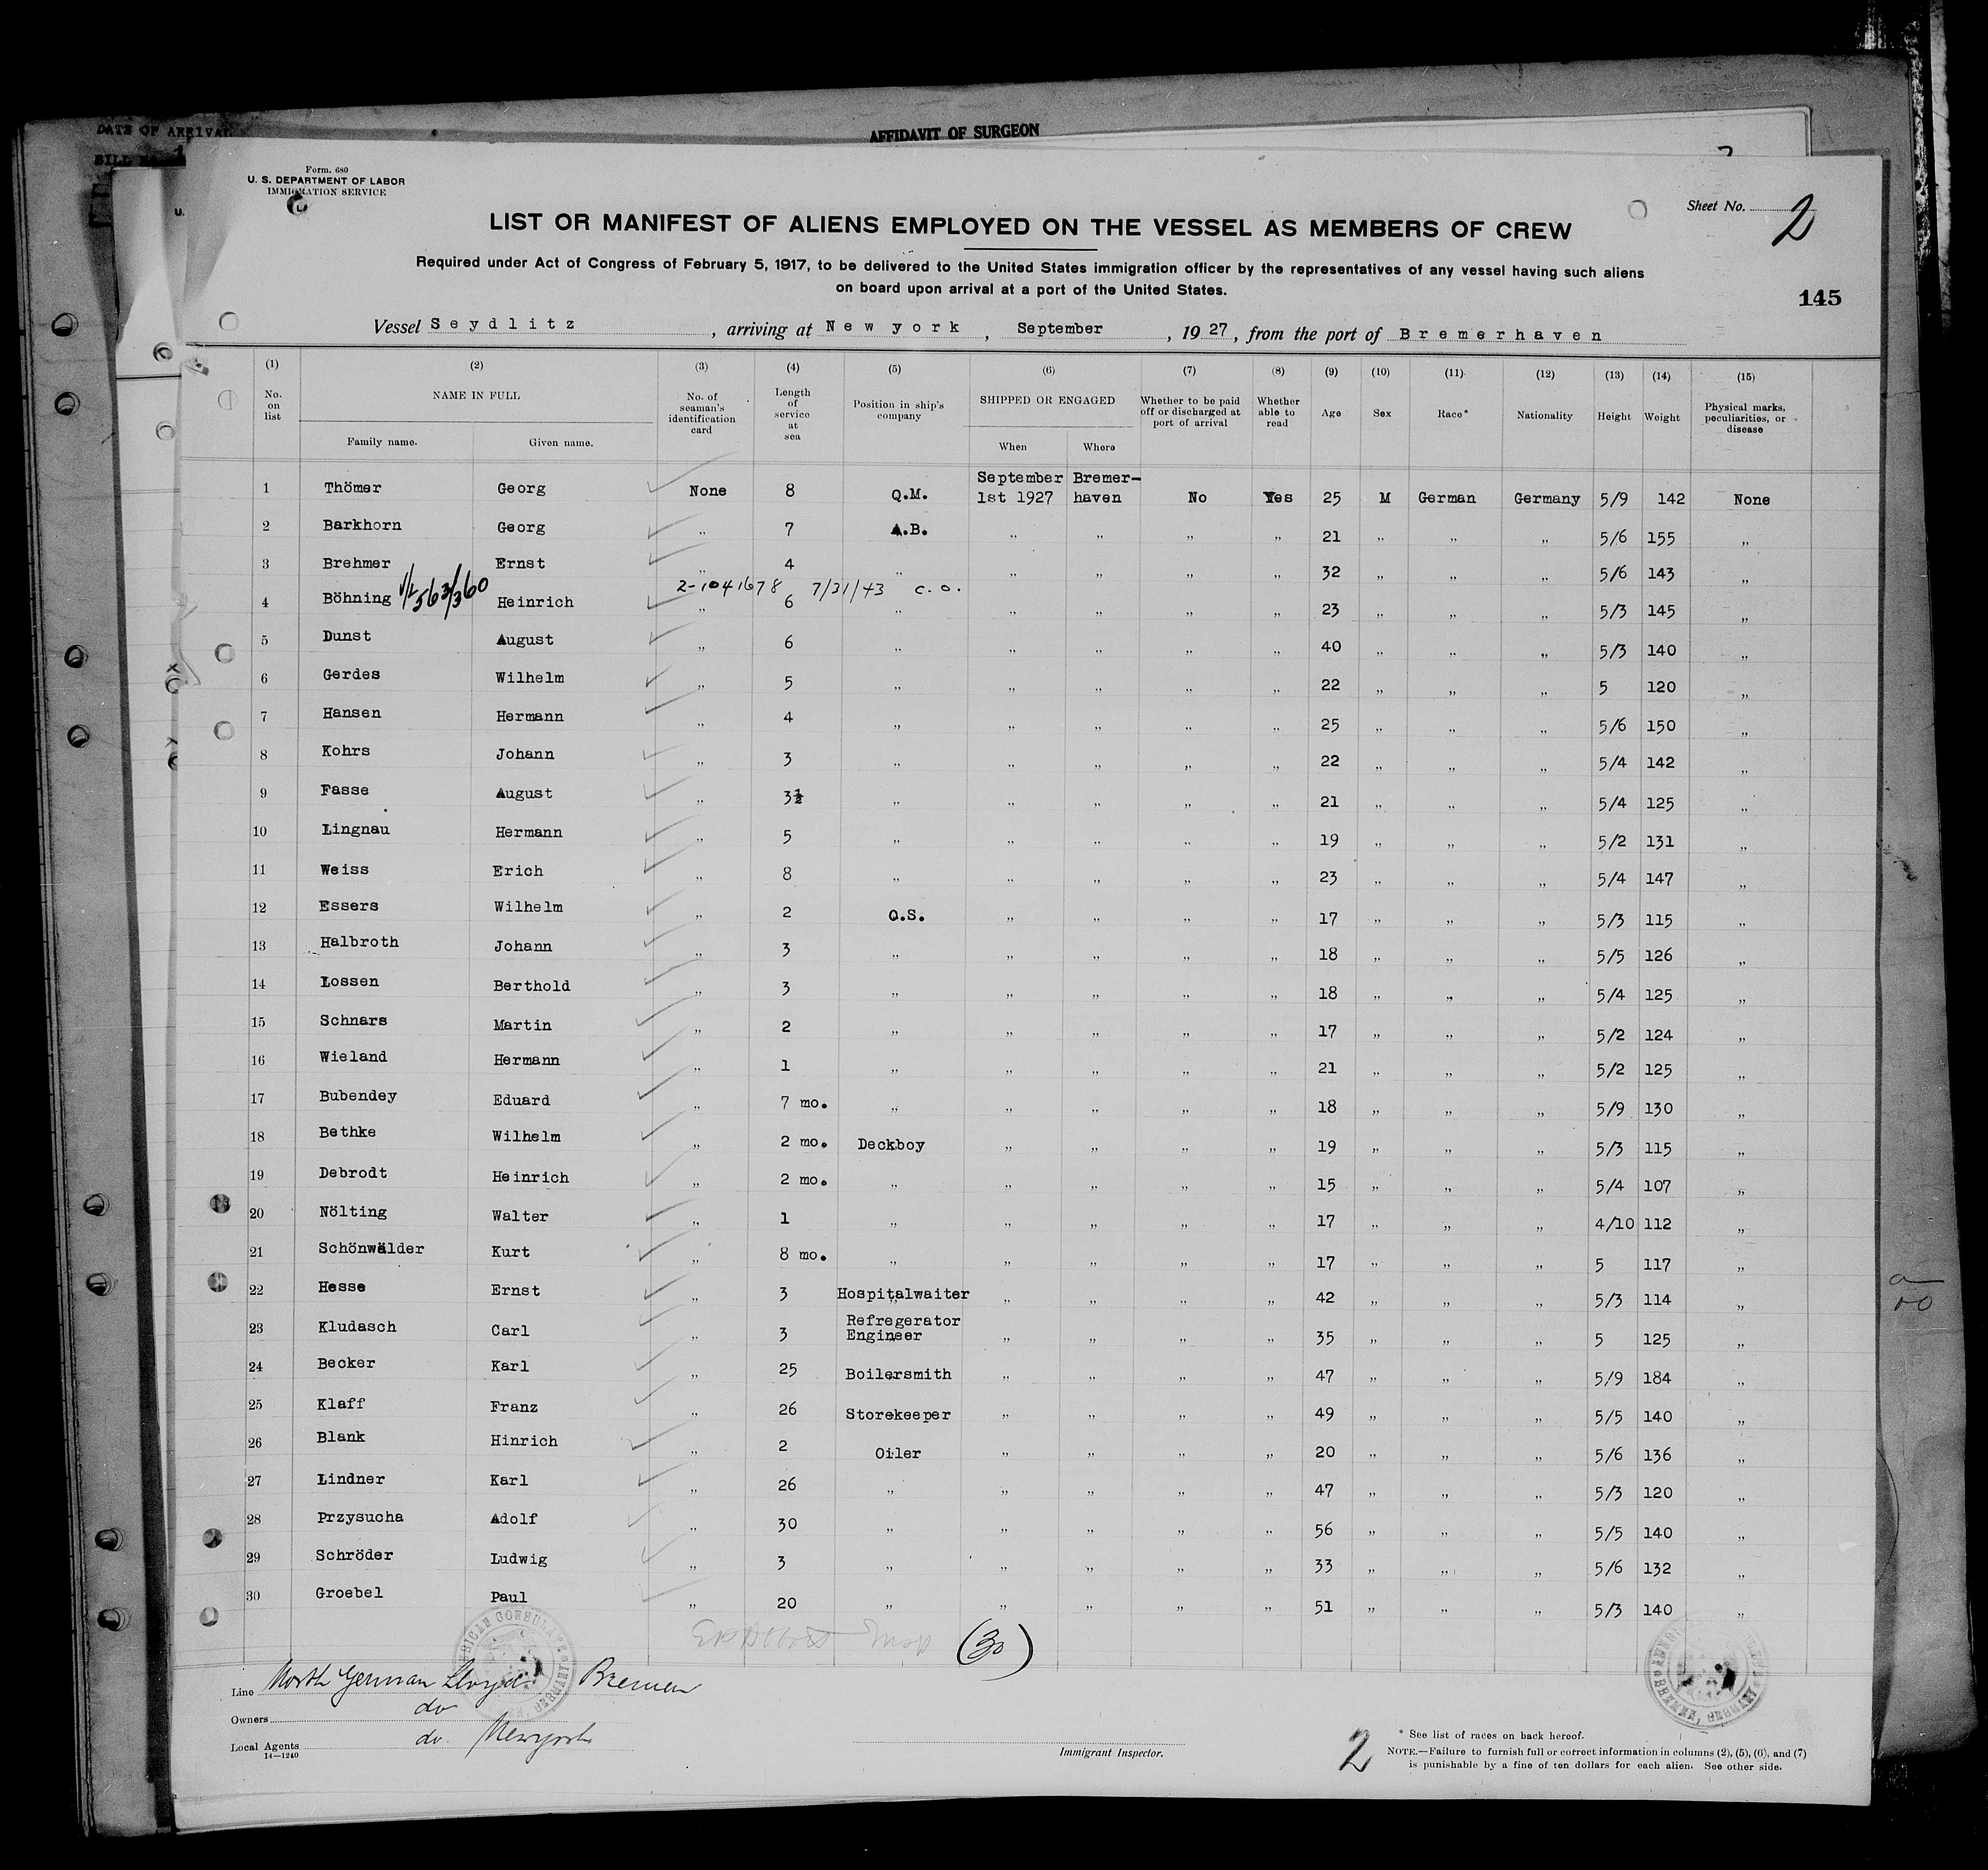 DATE OF ARRIVAL
AFFIDAVIT OF SURGEON
Form. 680
U. S. DEPARTMENT OF LABOR
IMMIGRATION SERVICE
Sheet No. 2
LIST OR MANIFEST OF ALIENS EMPLOYED ON THE VESSEL AS MEMBERS OF CREW
Required under Act of Congress of February 5, 1917, to be delivered to the United States immigration officer by the representatives of any vessel having such aliens
on board upon arrival at a port of the United States.
145
Vessel Seydlitz, arriving at New york, September, 1927, from the port of Bremerhaven
(1) (2) (3) (4) (5) (6) (7) (8) (9) (10) (11) (12) (13) (14) (15)
No. on list NAME IN FULL Family name. Given name. No. of seaman's identification card Length of service at sea Position in ship's company SHIPPED OR ENGAGED When Where Whether to be paid off or discharged at port of arrival Whether able to read Age Sex Race* Nationality Height Weight Physical marks, peculiarities, or disease
1 Thömer Georg None 8 Q.M. September 1st 1927 Bremer-haven No Yes 25 M German Germany 5/9 142 None
2 Barkhorn Georg „ 7 A.B. „ „ „ „ 21 „ „ „ 5/6 155 „
3 Brehmer Ernst „ 4 „ „ „ „ „ 32 „ „ „ 5/6 143 „
2-1041678 7/31/43 c.o.
4 Böhning Heinrich „ 6 „ „ „ „ „ 23 „ „ „ 5/3 145 „
5 Dunst August „ 6 „ „ „ „ „ 40 „ „ „ 5/3 140 „
6 Gerdes Wilhelm „ 5 „ „ „ „ „ 22 „ „ „ 5 120 „
7 Hansen Hermann „ 4 „ „ „ „ „ 25 „ „ „ 5/6 150 „
8 Kohrs Johann „ 3 „ „ „ „ „ 22 „ „ „ 5/4 142 „
9 Fasse August „ 3½ „ „ „ „ „ 21 „ „ „ 5/4 125 „
10 Lingnau Hermann „ 5 „ „ „ „ „ 19 „ „ „ 5/2 131 „
11 Weiss Erich „ 8 „ „ „ „ „ 23 „ „ „ 5/4 147 „
12 Essers Wilhelm „ 2 O.S. „ „ „ „ 17 „ „ „ 5/3 115 „
13 Halbroth Johann „ 3 „ „ „ „ „ 18 „ „ „ 5/5 126 „
14 Lossen Berthold „ 3 „ „ „ „ „ 18 „ „ „ 5/4 125 „
15 Schnars Martin „ 2 „ „ „ „ „ 17 „ „ „ 5/2 124 „
16 Wieland Hermann „ 1 „ „ „ „ „ 21 „ „ „ 5/2 125 „
17 Bubendey Eduard „ 7 mo. „ „ „ „ „ 18 „ „ „ 5/9 130 „
18 Bethke Wilhelm „ 2 mo. Deckboy „ „ „ „ 19 „ „ „ 5/3 115 „
19 Debrodt Heinrich „ 2 mo. „ „ „ „ „ 15 „ „ „ 5/4 107 „
20 Nölting Walter „ 1 „ „ „ „ „ 17 „ „ „ 4/10 112 „
21 Schönwälder Kurt „ 8 mo. „ „ „ „ „ 17 „ „ „ 5 117 „
22 Hesse Ernst „ 3 Hospitalwaiter „ „ „ „ 42 „ „ „ 5/3 114 „
23 Kludasch Carl „ 3 Refregerator Engineer „ „ „ „ 35 „ „ „ 5 125 „
24 Becker Karl „ 25 Boilersmith „ „ „ „ 47 „ „ „ 5/9 184 „
25 Klaff Franz „ 26 Storekeeper „ „ „ „ 49 „ „ „ 5/5 140 „
26 Blank Hinrich „ 2 Oiler „ „ „ „ 20 „ „ „ 5/6 136 „
27 Lindner Karl „ 26 „ „ „ „ „ 47 „ „ „ 5/3 120 „
28 Przysucha Adolf „ 30 „ „ „ „ „ 56 „ „ „ 5/5 140 „
29 Schröder Ludwig „ 3 „ „ „ „ „ 33 „ „ „ 5/6 132 „
30 Groebel Paul „ 20 „ „ „ „ „ 51 „ „ „ 5/3 140 „
(30)
Line North German Lloyd Bremen
Owners do
Local Agents do. Newyork
14—1240
Immigrant Inspector.
2
* See list of races on back hereof.
NOTE.—Failure to furnish full or correct information in columns (2), (5), (6), and (7)
is punishable by a fine of ten dollars for each alien. See other side.